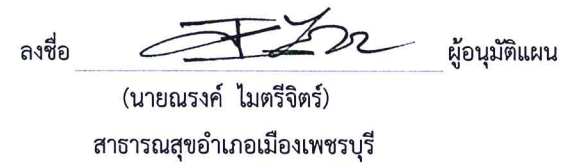 ลงชื่อ ผู้อนุมัติแผน
(นายณรงค์ ไมตรีจิตร์)
สาธารณสุขอำเภอเมืองเพชรบุรี